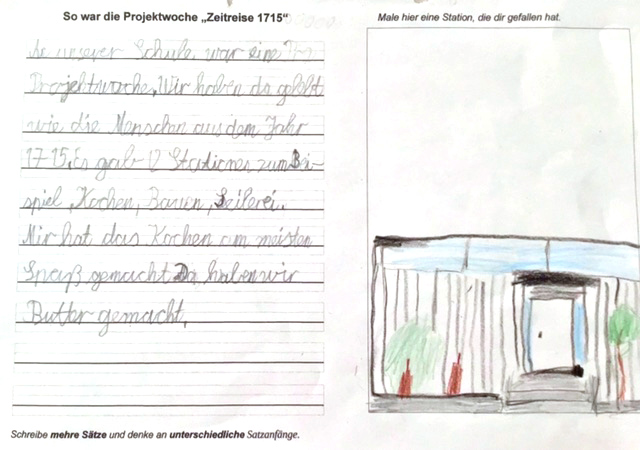 So war die Projektwoche „Zeitreise 1715“
Male hier eine Station, die dir gefallen hat.
An unserer Schule war eine
Projektwoche. Wir haben da gelebt
wie die Menschen aus dem Jahr
1715. Es gab 12 Stationen zum Bei-
spiel, Kochen, Bauen, Seilerei.
Mir hat das Kochen am meisten
Spaß gemacht Da haben wir
Butter gemacht.
Schreibe mehre Sätze und denke an unterschiedliche Satzanfänge.